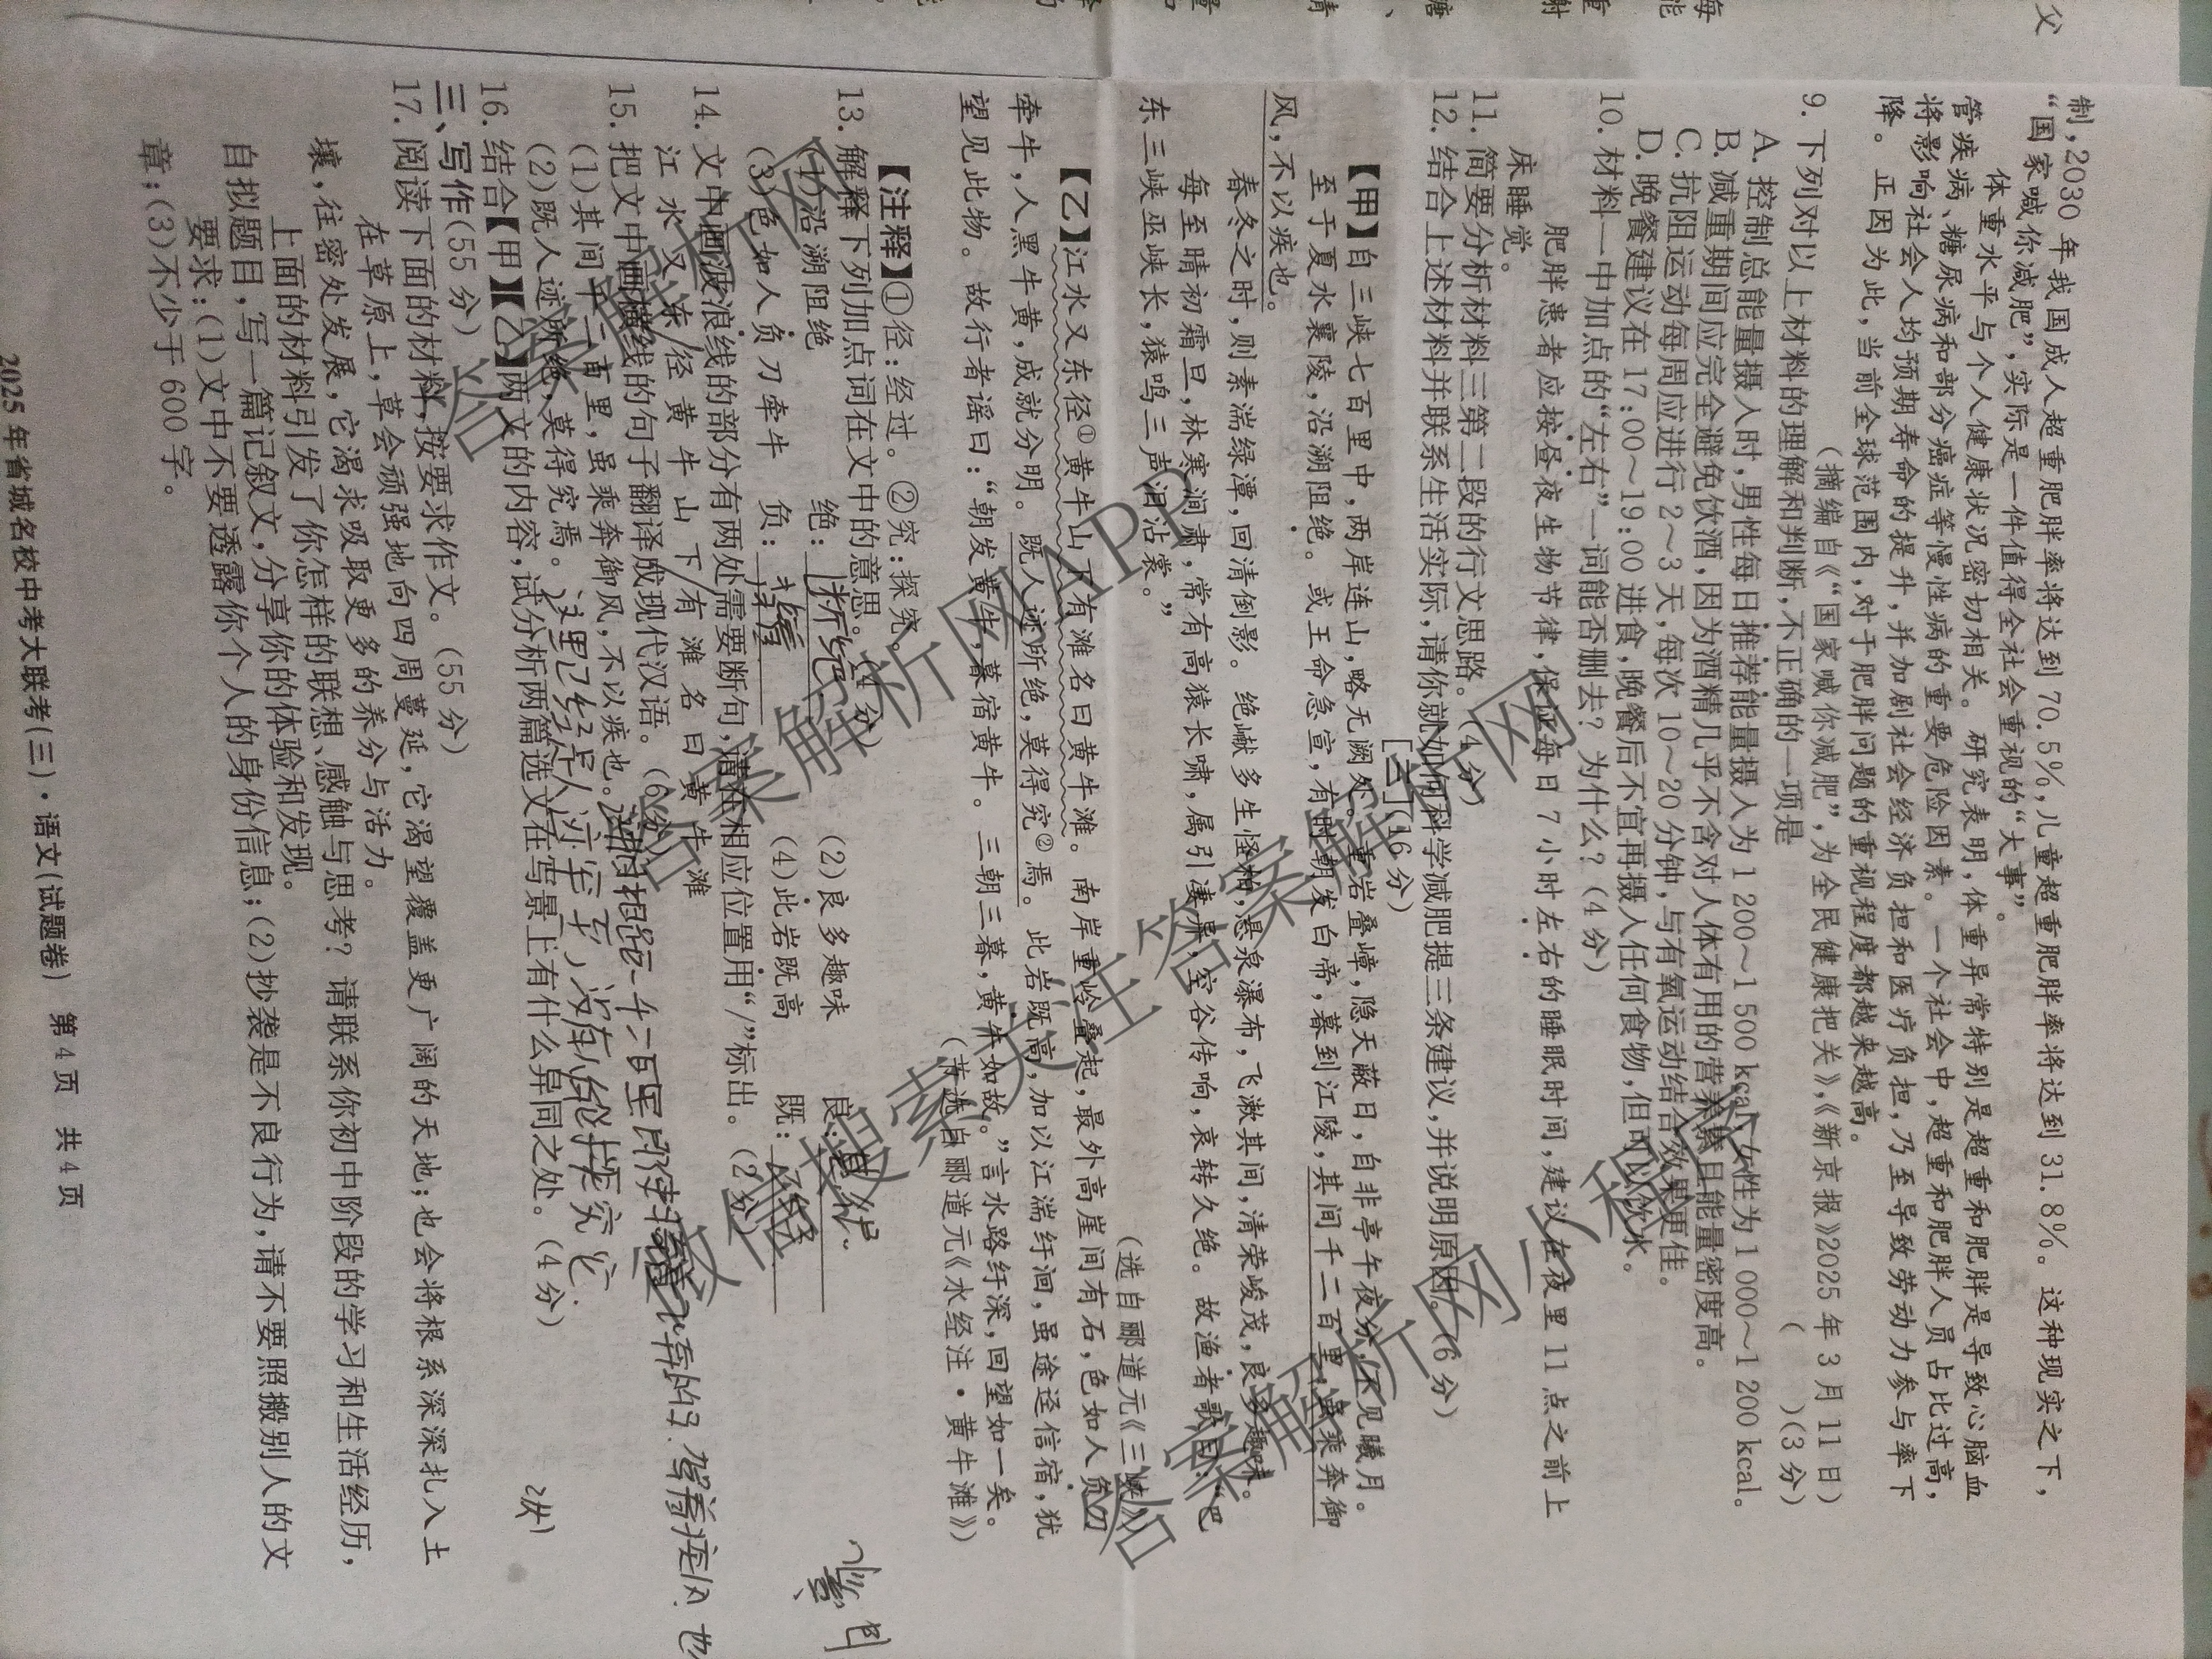 制,2030 年我国成人超重肥胖率将达到 70.5%,儿童超重肥胖率将达到 31.8%。这种现实之下,
“国家喊你减肥”,实际是一件值得全社会重视的“大事”。
体重水平与个人健康状况密切相关。研究表明,体重异常特别是超重和肥胖是导致心脑血
管疾病、糖尿病和部分癌症等慢性病的重要危险因素。一个社会中,超重和肥胖人员占比过高,
将影响社会人均预期寿命的提升,并加剧社会经济负担和医疗负担,乃至导致劳动力参与率下
降。正因为此,当前全球范围内,对于肥胖问题的重视程度都越来越高。
(摘编自《“国家喊你减肥”,为全民健康把关》,《新京报》2025 年 3 月 11 日)
9. 下列对以上材料的理解和判断,不正确的一项是 ( )(3 分)
A. 控制总能量摄入时,男性每日推荐能量摄入为 1 200～1 500 kcal,女性为 1 000～1 200 kcal。
B. 减重期间应完全避免饮酒,因为酒精几乎不含对人体有用的营养素且能量密度高。
C. 抗阻运动每周应进行 2～3 天,每次 10～20 分钟,与有氧运动结合效果更佳。
D. 晚餐建议在 17:00～19:00 进食,晚餐后不宜再摄入任何食物,但可以饮水。
10. 材料一中加点的“左右”一词能否删去? 为什么? (4 分)
肥胖患者应按昼夜生物节律,保证每日 7 小时左右的睡眠时间,建议在夜里 11 点之前上
床睡觉。
11. 简要分析材料三第二段的行文思路。(4 分)
12. 结合上述材料并联系生活实际,请你就如何科学减肥提三条建议,并说明原因。(6 分)
[三](16 分)
【甲】自三峡七百里中,两岸连山,略无阙处。重岩叠嶂,隐天蔽日,自非亭午夜分,不见曦月。
至于夏水襄陵,沿溯阻绝。或王命急宣,有时朝发白帝,暮到江陵,其间千二百里,虽乘奔御
风,不以疾也。
春冬之时,则素湍绿潭,回清倒影。绝巘多生怪柏,悬泉瀑布,飞漱其间,清荣峻茂,良多趣味。
每至晴初霜旦,林寒涧肃,常有高猿长啸,属引凄异,空谷传响,哀转久绝。故渔者歌曰:“巴
东三峡巫峡长,猿鸣三声泪沾裳。”
(选自郦道元《三峡》)
【乙】江水又东径①黄牛山下有滩名曰黄牛滩。南岸重岭叠起,最外高崖间有石,色如人负刀
牵牛,人黑牛黄,成就分明。既人迹所绝,莫得究②焉。此岩既高,加以江湍纡洄,虽途迳信宿,犹
望见此物。故行者谣曰:“朝发黄牛,暮宿黄牛。三朝三暮,黄牛如故。”言水路纡深,回望如一矣。
(节选自郦道元《水经注·黄牛滩》)
【注释】①径:经过。②究:探究。
13. 解释下列加点词在文中的意思。(4 分)
(1)沿溯阻绝 绝: 断绝 (2)良多趣味 良:
(3)色如人负刀牵牛 负: (4)此岩既高 既: 已经
14. 文中画波浪线的部分有两处需要断句,请在相应位置用“/”标出。(2 分)
江水又东/径黄牛山下/有滩名曰黄牛滩
15. 把文中画横线的句子翻译成现代汉语。(6 分)
(1)其间千二百里,虽乘奔御风,不以疾也。
(2)既人迹所绝,莫得究焉。
16. 结合【甲】【乙】两文的内容,试分析两篇选文在写景上有什么异同之处。(4 分)
三、写作(55 分)
17. 阅读下面的材料,按要求作文。(55 分)
在草原上,草会顽强地向四周蔓延,它渴望覆盖更广阔的天地;也会将根系深深扎入土
壤,往密处发展,它渴求吸取更多的养分与活力。
上面的材料引发了你怎样的联想、感触与思考? 请联系你初中阶段的学习和生活经历,
自拟题目,写一篇记叙文,分享你的体验和发现。
要求:(1)文中不要透露你个人的身份信息;(2)抄袭是不良行为,请不要照搬别人的文
章;(3)不少于 600 字。
2025 年省城名校中考大联考(三)·语文(试题卷) 第 4 页 共 4 页